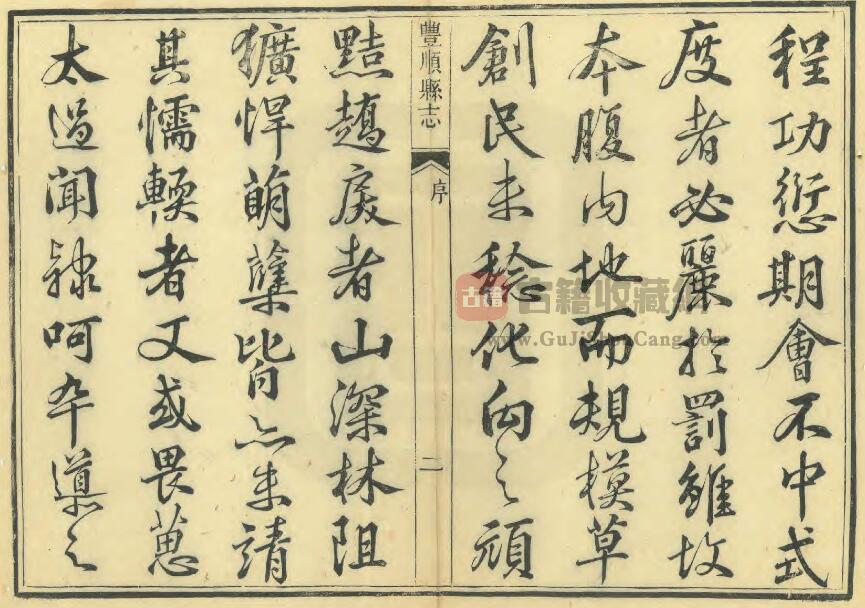 程功愆期會不中式
度者必麗於罰雖故
本腹內地而規模草
創民未稔化向之頑
豐順縣志
序
二
黠趫處者山深林阻
獷悍萌蘖皆亦未靖
其懦輭者又或畏葸
太過聞隸呵卒導之
古籍
古籍收藏网
www.GuJiShouCang.com